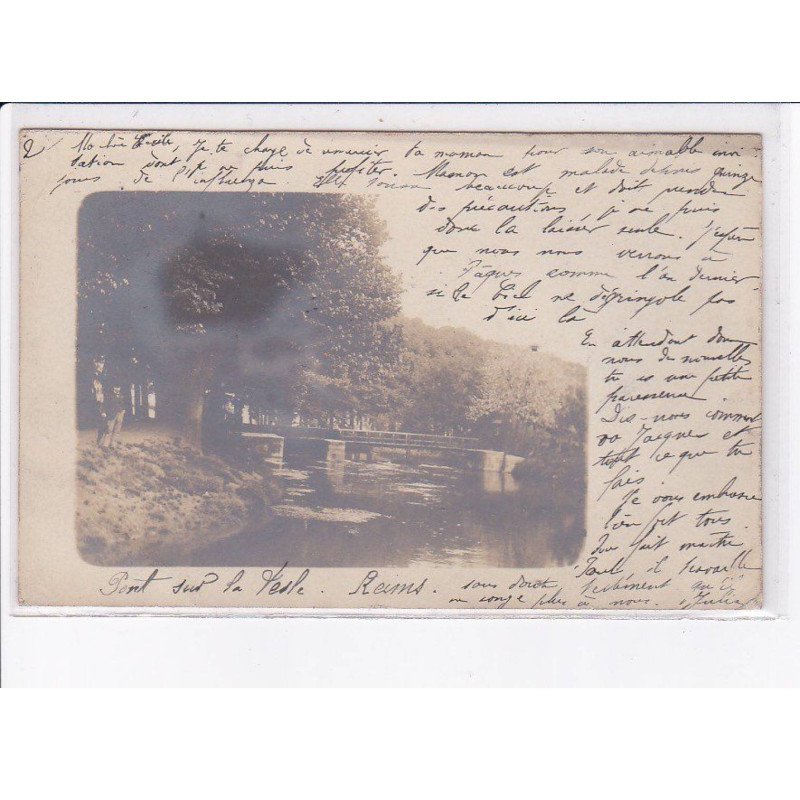 2
Ma chère Cécile, Je te charge de remercier ta maman pour son aimable invi
tation dont je ne puis profiter. Maman est malade depuis quinze
jours de l'influenza. Elle beaucoup et doit prendre
des précautions je ne puis
donc la laisser seule. J'espère
que nous nous verrons à
Pâques comme l'an dernier
si le Ciel ne dégringole pas
d'ici là
En attendant donne
nous de nouvelles
tu es une petite
paresseuse.
Dis-nous comment
va Jacques et
tout ce que tu
fais.
Je vous embrasse
bien fort tous.
Que fait maître
Paul il travaille
sans doute
ne songe plus à nous. Julia
Pont sur la Vesle. Reims.